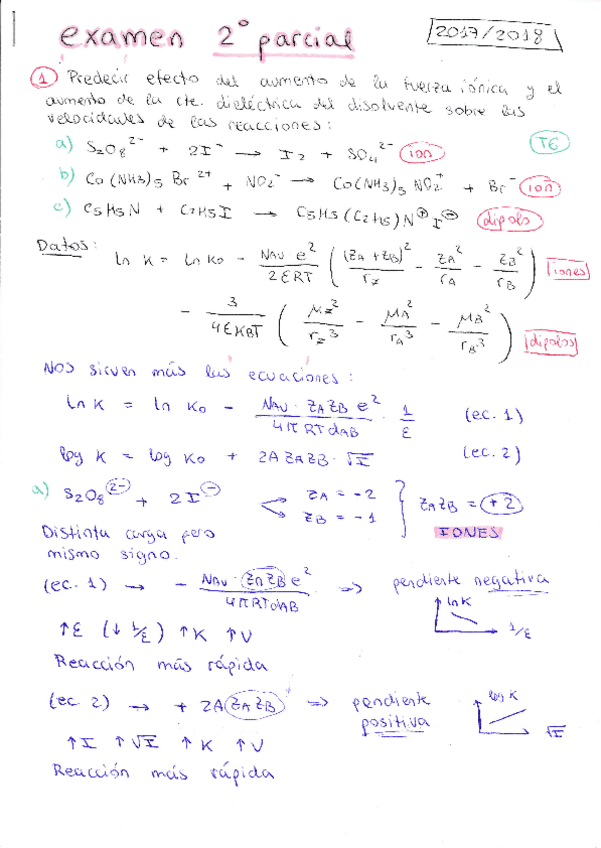 examen 2º parcial
2017/2018
① Predecir efecto del aumento de la fuerza iónica y el
aumento de la cte. dieléctrica del disolvente sobre las
velocidades de las reacciones:
a) S2O8^2- + 2I^- → I2 + SO4^2- (ion)
T6
b) Co(NH3)5 Br^2+ + NO2^- → Co(NH3)5 NO2^+ + Br^- (ion)
c) C5H5N + C2H5I → C5H5(C2H5)N^⊕ I^⊖ (dipolo)
Datos:
ln K = ln K0 - NAV e^2 / 2ERT ( (ZA + ZB)^2 / r≠ - ZA^2 / rA - ZB^2 / rB ) [iones]
- 3 / 4EKBT ( μ≠^2 / r≠^3 - μA^2 / rA^3 - μB^2 / rB^3 ) [dipolos]
Nos sirven más las ecuaciones:
ln K = ln K0 - NAV · ZAZB e^2 / 4π RT dAB · 1/ε (ec. 1)
log K = log K0 + 2A ZAZB · √I (ec. 2)
a) S2O8^2- + 2I^- < ZA = -2 ZB = -1 } ZAZB = +2
IONES
Distinta carga pero
mismo signo.
(ec. 1) → - NAV · ZAZB e^2 / 4πRT dAB ⇒ pendiente negativa
ln K
1/ε
↑ε (↓ 1/ε) ↑K ↑V
Reacción más rápida
(ec 2) → + 2A ZAZB ⇒ pendiente positiva
log K
√I
↑I ↑√I ↑K ↑V
Reacción más rápida